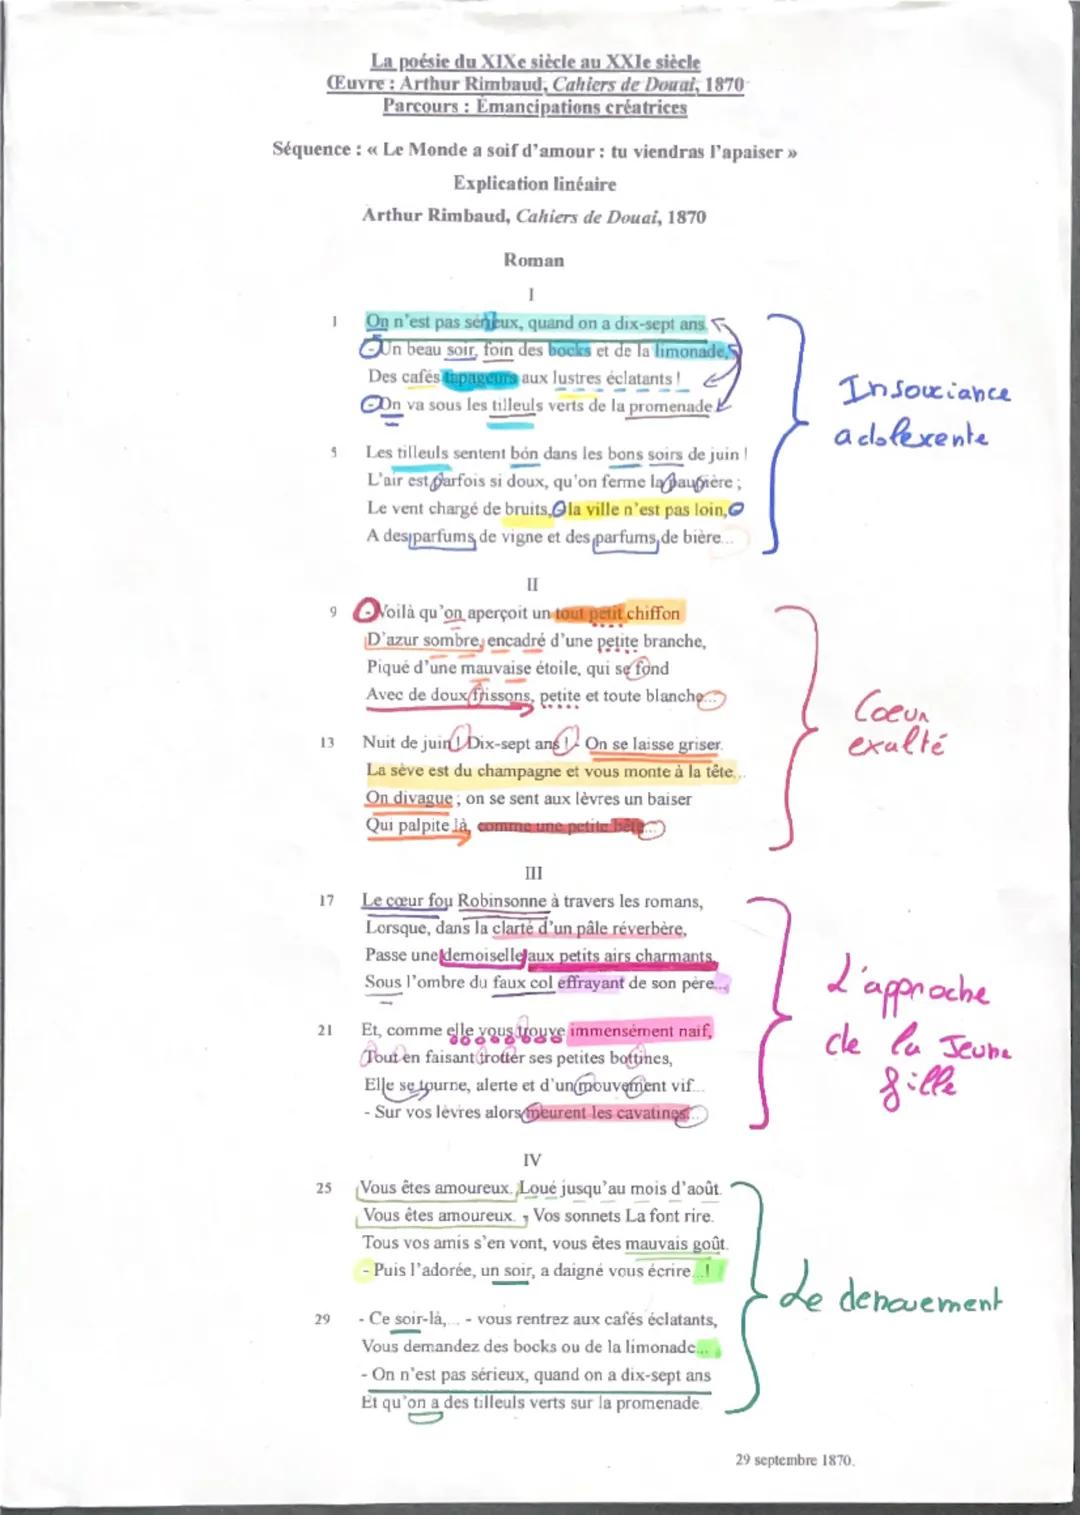 La poésie du XIXe siècle au XXIe siècle
Œuvre : Arthur Rimbaud, Cahiers de Douai, 1870
Parcours : Émancipations créatrices
Séquence : « Le Monde a soif d'amour : tu viendras l'apaiser »
Explication linéaire
Arthur Rimbaud, Cahiers de Douai, 1870
Roman
I
1 On n'est pas sérieux, quand on a dix-sept ans.
- Un beau soir, foin des bocks et de la limonade,
Des cafés tapageurs aux lustres éclatants !
- On va sous les tilleuls verts de la promenade.
5 Les tilleuls sentent bon dans les bons soirs de juin !
L'air est parfois si doux, qu'on ferme la paupière ;
Le vent chargé de bruits, - la ville n'est pas loin, -
A des parfums de vigne et des parfums de bière...
Insouciance
adolescente
II
9 - Voilà qu'on aperçoit un tout petit chiffon
D'azur sombre, encadré d'une petite branche,
Piqué d'une mauvaise étoile, qui se fond
Avec de doux frissons, petite et toute blanche...
13 Nuit de juin ! Dix-sept ans ! - On se laisse griser.
La sève est du champagne et vous monte à la tête...
On divague ; on se sent aux lèvres un baiser
Qui palpite là, comme une petite bête...
Coeur
exalté
III
17 Le cœur fou Robinsonne à travers les romans,
Lorsque, dans la clarté d'un pâle réverbère,
Passe une demoiselle aux petits airs charmants,
Sous l'ombre du faux col effrayant de son père...
21 Et, comme elle vous trouve immensément naïf,
Tout en faisant trotter ses petites bottines,
Elle se tourne, alerte et d'un mouvement vif...
- Sur vos lèvres alors meurent les cavatines...
L'approche
de la Jeune
fille
IV
25 Vous êtes amoureux. Loué jusqu'au mois d'août.
Vous êtes amoureux. - Vos sonnets La font rire.
Tous vos amis s'en vont, vous êtes mauvais goût.
- Puis l'adorée, un soir, a daigné vous écrire...!
29 - Ce soir-là,... - vous rentrez aux cafés éclatants,
Vous demandez des bocks ou de la limonade...
- On n'est pas sérieux, quand on a dix-sept ans
Et qu'on a des tilleuls verts sur la promenade.
Le denouement
29 septembre 1870.